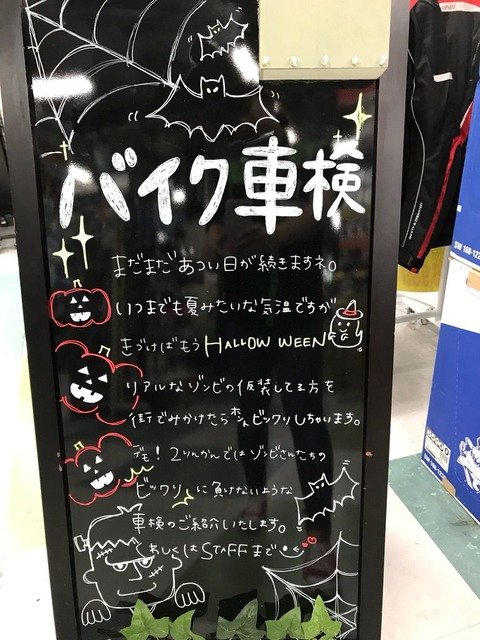 バイク車検
まだまだあつい日が続きますネ。
いつまでも夏みたいな気温ですが
きづけばもう HALLOW WEEN
リアルなゾンビの仮装してる方を
街でみかけたらホントビックリしちゃいます。
でも！2りんかんではゾンビさんたちの
ビックリに負けないような
車検のご紹介いたします。
くわしくはSTAFFまで
SW 160-122